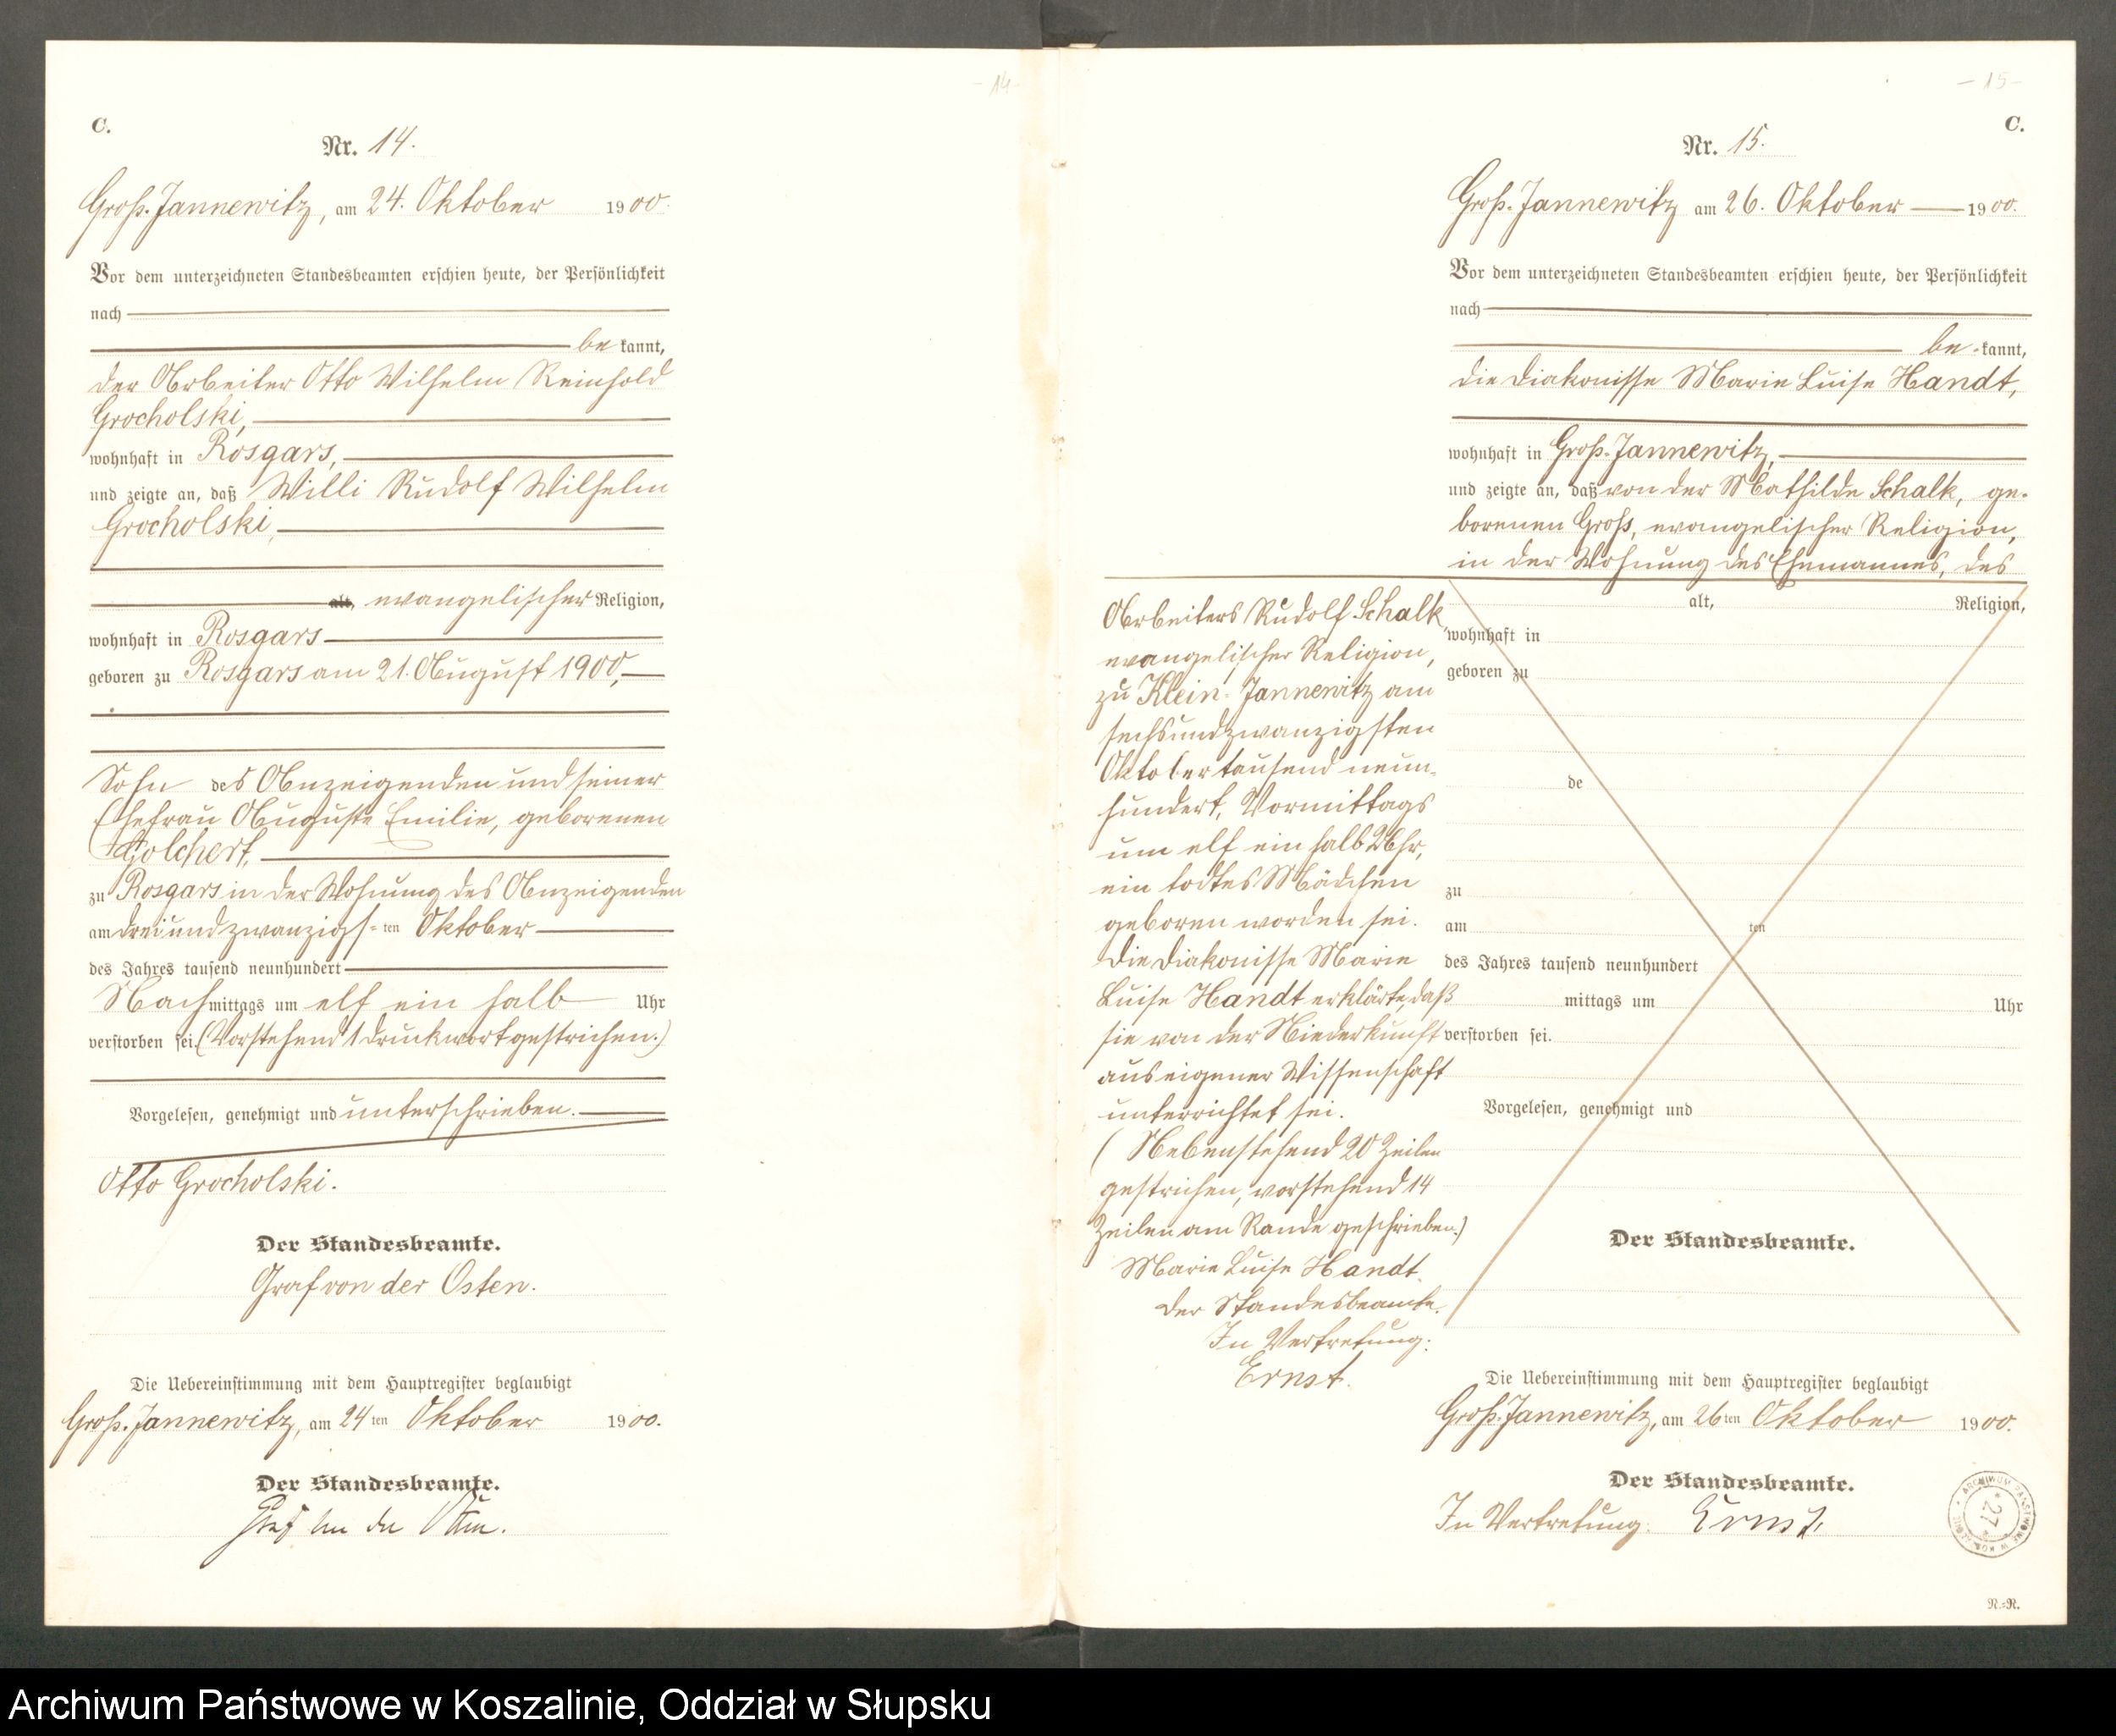 - 14 -
C.
Nr. 14.
Groß-Jannewitz, am 24. Oktober 1900.
Vor dem unterzeichneten Standesbeamten erschien heute, der Persönlichkeit
nach
be kannt,
der Arbeiter Otto Wilhelm Reinhold
Grocholski,
wohnhaft in Rosgars,
und zeigte an, daß Willi Rudolf Wilhelm
Grocholski,
alt, evangelischer Religion,
wohnhaft in Rosgars
geboren zu Rosgars am 21. August 1900,
Sohn des Anzeigenden und seiner
Ehefrau Auguste Emilie, geborenen
Golchert,
zu Rosgars in der Wohnung des Anzeigenden
am dreiundzwanzigs-ten Oktober
des Jahres tausend neunhundert
Nachmittags um elf ein halb Uhr
verstorben sei. (Vorstehend 1 Druckwort gestrichen.)
Vorgelesen, genehmigt und unterschrieben.
Otto Grocholski.
Der Standesbeamte.
Graf von der Osten.
Die Uebereinstimmung mit dem Hauptregister beglaubigt
Groß-Jannewitz, am 24ten Oktober 1900.
Der Standesbeamte.
Graf von der Osten.
- 15 -
C.
Nr. 15.
Groß-Jannewitz am 26. Oktober 1900.
Vor dem unterzeichneten Standesbeamten erschien heute, der Persönlichkeit
nach
be-kannt,
die Diakonisse Marie Luise Handt,
wohnhaft in Groß-Jannewitz,
und zeigte an, daß von der Mathilde Schalk, ge-
borenen Groß, evangelischer Religion,
in der Wohnung des Ehemannes, des
Arbeiters Rudolf Schalk,
evangelischer Religion,
zu Klein-Jannewitz am
sechsundzwanzigsten
Oktober tausend neun-
hundert, Vormittags
um elf ein halb Uhr,
ein todtes Mädchen
geboren worden sei.
Die Diakonisse Marie
Luise Handt erklärte, daß
sie von der Niederkunft
aus eigener Wissenschaft
unterrichtet sei.
(Nebenstehend 20 Zeilen
gestrichen, vorstehend 14
Zeilen am Rande geschrieben.)
Marie Luise Handt.
Der Standesbeamte.
In Vertretung:
Ernst.
alt, Religion,
wohnhaft in
geboren zu
de
zu
am ten
des Jahres tausend neunhundert
mittags um Uhr
verstorben sei.
Vorgelesen, genehmigt und
Der Standesbeamte.
Die Uebereinstimmung mit dem Hauptregister beglaubigt
Groß-Jannewitz, am 26ten Oktober 1900.
Der Standesbeamte.
In Vertretung: Ernst.
27
N.-N.
Archiwum Państwowe w Koszalinie, Oddział w Słupsku